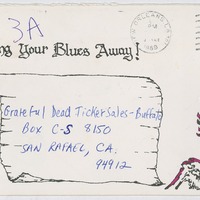 3A
ng Your Blues Away!
Grateful Dead Ticket Sales - Buffalo
Box C-S 8150
SAN RAFAEL, CA.
94912